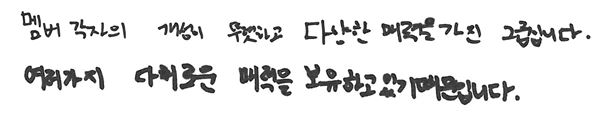 멤버 각자의 개성이 뚜렷하고 다양한 매력을 가진 그룹입니다.
여러가지 다채로운 매력을 보유하고 있기 때문입니다.